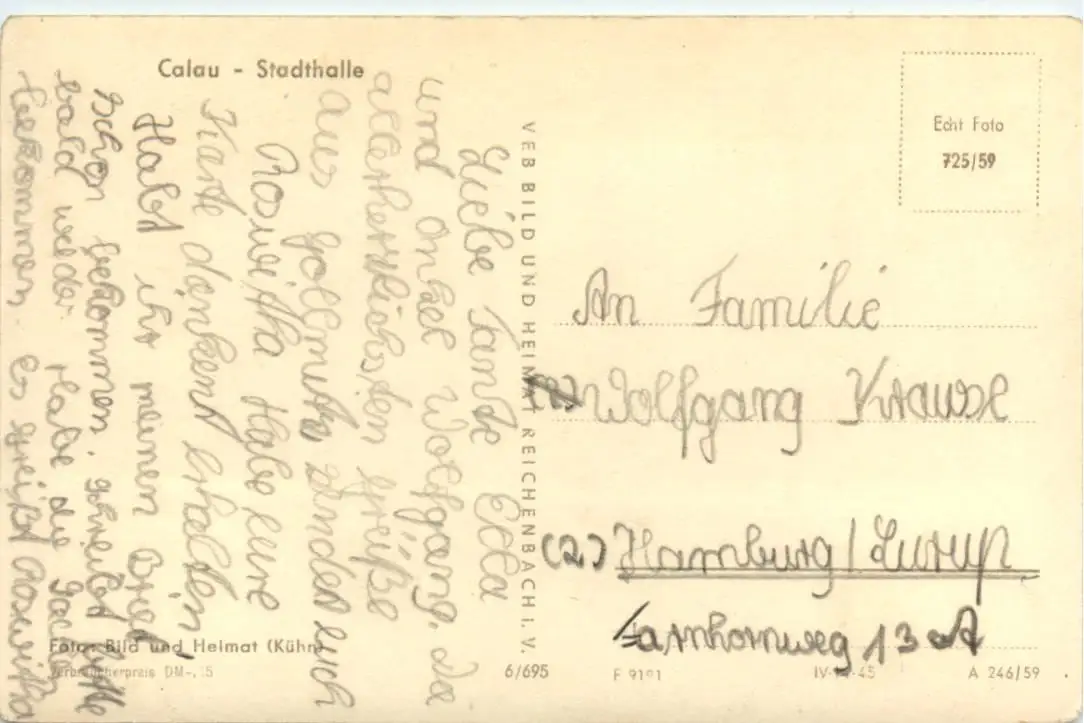 Calau - Stadthalle
Liebe Tante Ella
und Onkel Wolfgang. Die
allerherzlichsten Grüße
aus Gollmitz sendet euch
Roswitha Habe eure
Karte dankend erhalten
Habt ihr meinen Brief
schon bekommen. schreibt bitte
bald wieder Habe die
bekommen Es grüßt Roswitha
Foto: Bild und Heimat (Kühn)
Verbraucherpreis DM
VEB BILD UND HEIMAT REICHENBACH I. V.
6/695
Echt Foto
725/59
An Familie
Wolfgang Krause
(2) Hamburg / Lurup
Farnhornweg 13 A
F 9191
45
A 246/59